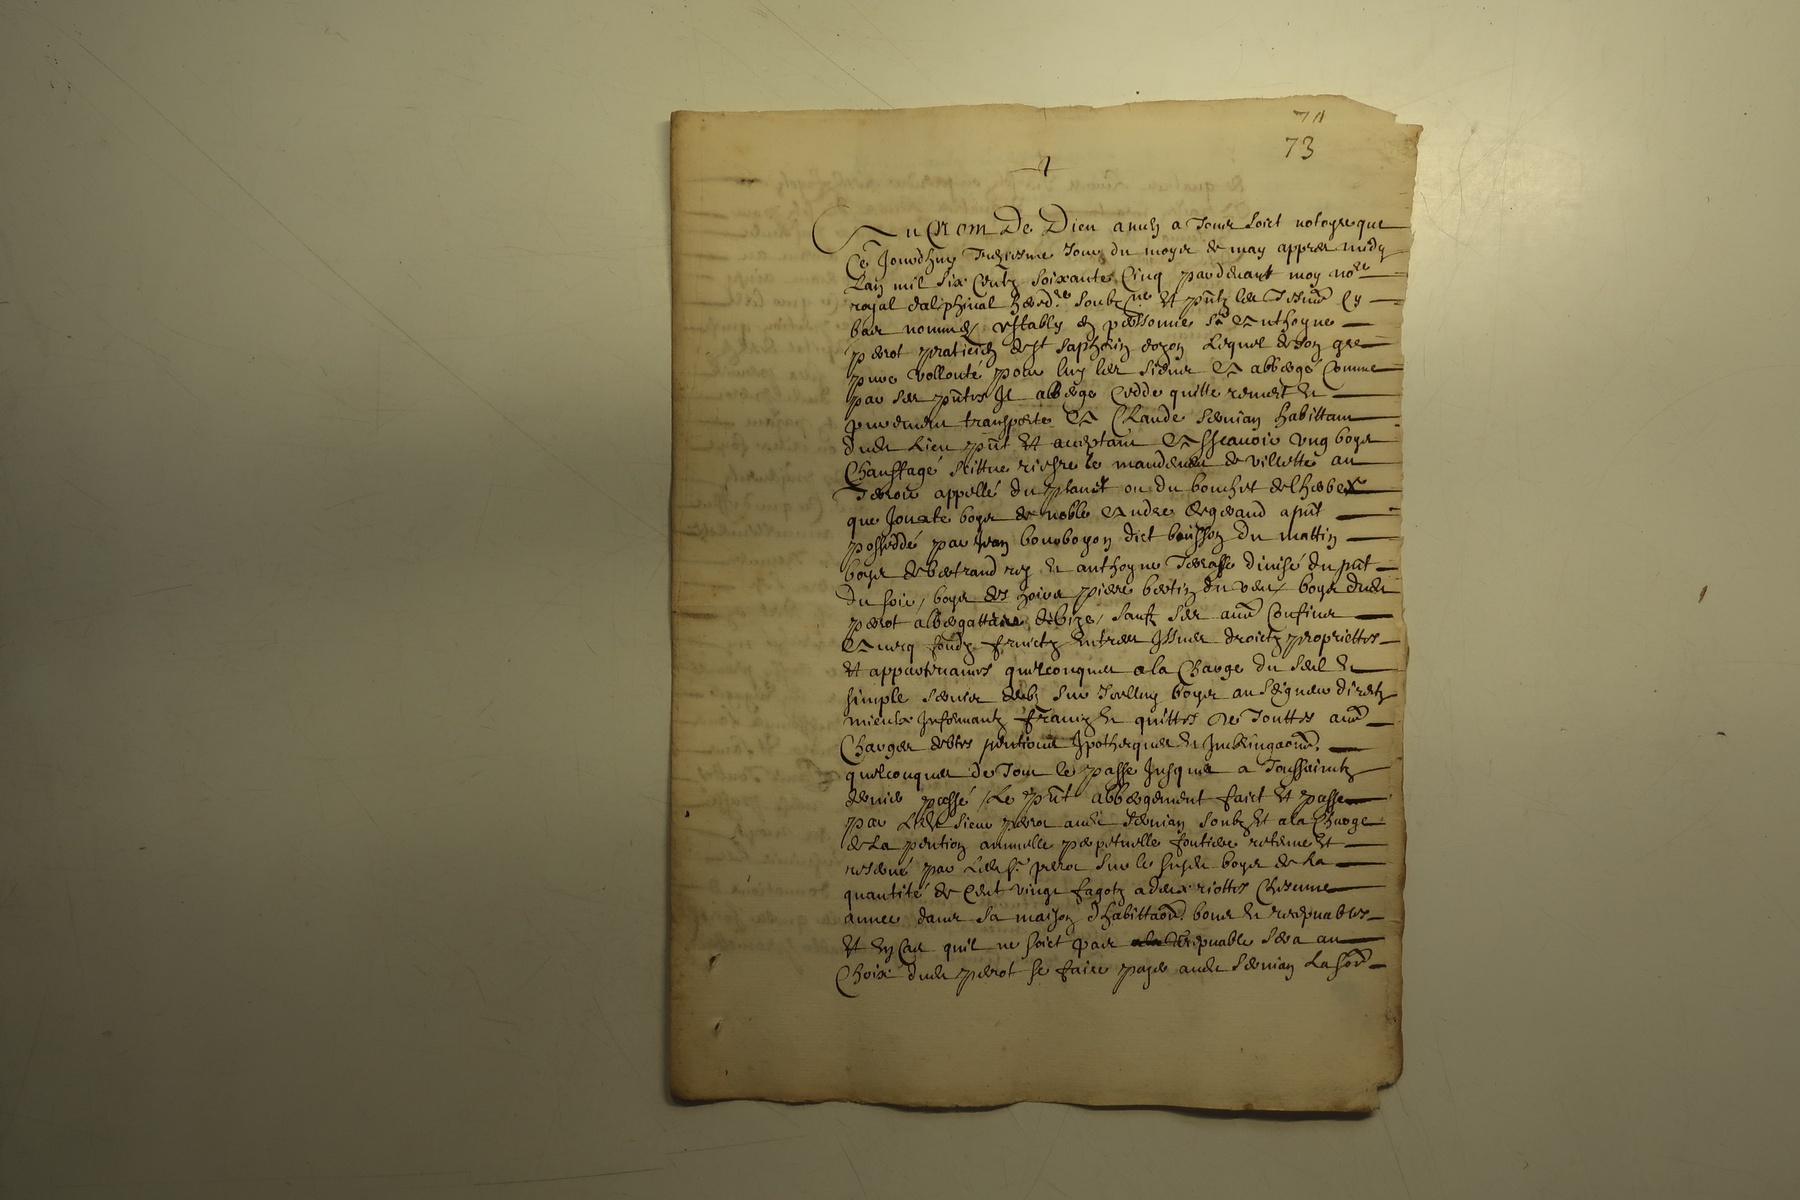 73
Au Nom De Dieu amen a Tous soict notoyre que
Ce Jourdhuy Treziesme Jour du moys de may appres midy
Lan mil six Centz soixante Cinq par devant moy nore
royal dalphinal hered.re soubz.ne et pntz les Tesmо̃ Cy
bas nommes estably en personne Sr Anthoyne
perrot praticien de st saphorin dozon Lequel de son gre
pure vollonté pour luy les siens A abbergé Comme
par ses pntes Il alberge Cedde quitte remest et
purement transporte A Claude servian habittant
dudit Lieu pnt et acceptant Assscavoir ung boys
Chauffage scittue riesre le mandement de villette au
Terroir appellé du planit ou du bouchet
que Jouxte boys de noble Andre a pnt
possedé par Jean dict buisson du mattin
boys de bertrand rey et anthoyne Terrasse divisé du pnt
du soir / boys des hoirs pierre bertin du vent / boys dudit
perrot albergattaire de bize / sauf ses aues Confins
Avecq fondz fruictz entrees Issues droictz propriettes
et appartenances quelconques a la Charge du seul et
simple servis deub sur Icelluy boys au seigneur direct
mieulx Informantz francz et quittes de Touttes aues
Charges debtes pentions Ipothecques et
quelconques de Tout le passe Jusques a Toussainctz
dernier passé / Le pnt abbergement faict et passe
par Ledit sieur perrot audit servian soubz et a la Charge
de La pention annuelle perpetuelle fontiere retenue et
reservé par Ledit sr perrot sur le susdit boys de La
quantité de Cent vingt fagotz a deux riottes Chescune
annee dans sa maison dhabittaon bons et receptables
et en Cas quil ne soict pas receptable sera au
Choix dudit perrot se faire payer audit servian La som̃